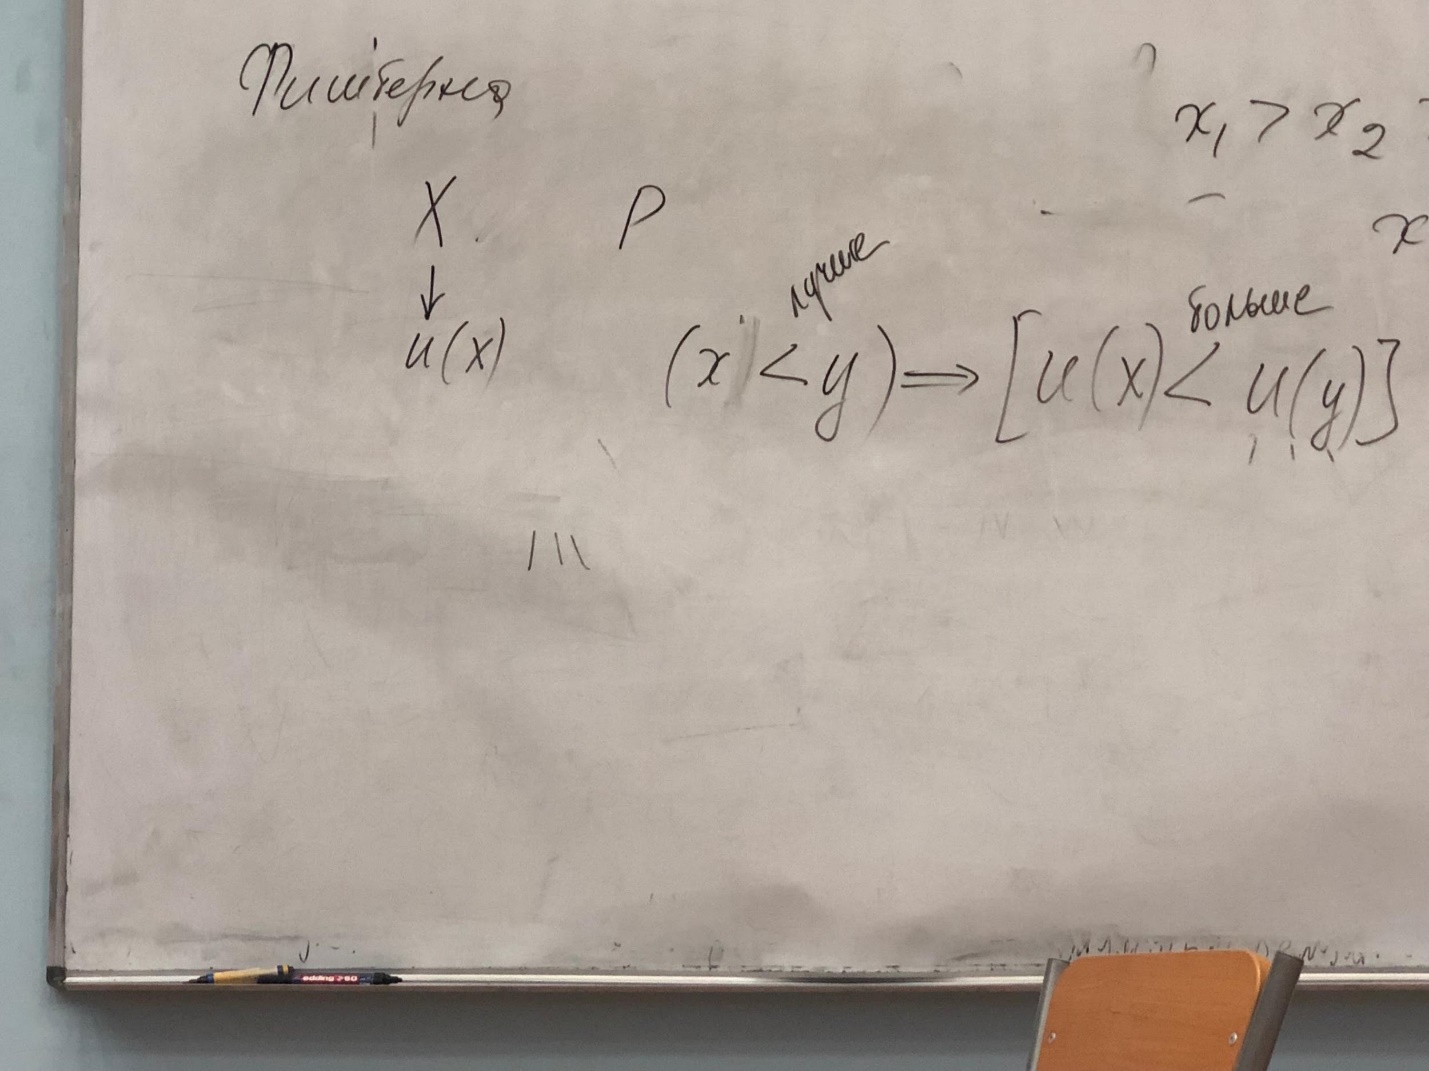 Фишберна
x₁ > x₂
X P
x
↓
лучше
больше
u(x) (x < y) ⇒ [u(x) < u(y)]
edding 250